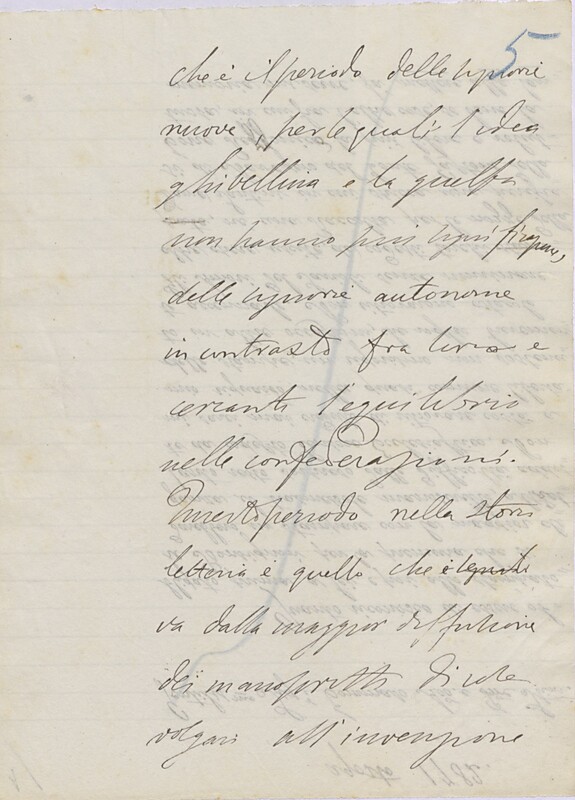 5
che è il periodo delle signorie
nuove, per le quali l'idea
ghibellina e la guelfa
non hanno più
delle signorie autonome
in contrasto fra loro e
cercanti l'equilibrio
nelle confederazioni.
Questo periodo nella storia
letteria è quello che
va dalla maggior diffusione
dei manoscritti
volgari all'invenzione